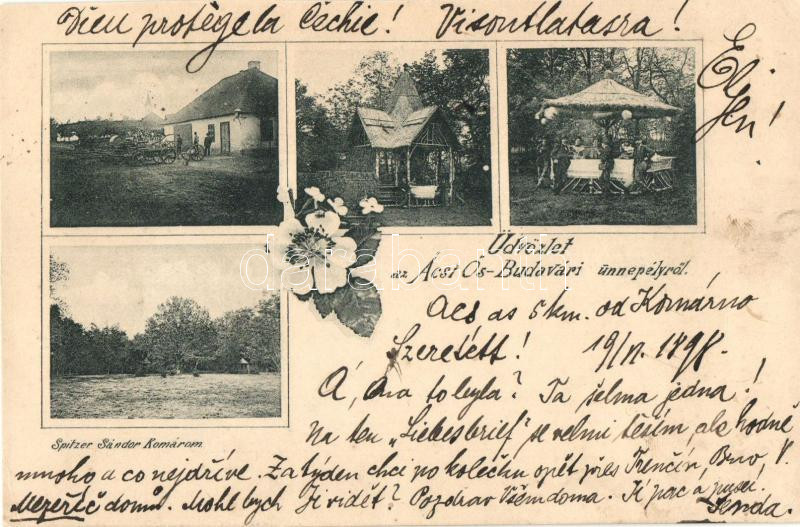 Dieu protège la Čechie! Visontlatasra!
Eljen!
Üdvözlet
az Ácsi Ős-Budavári ünnepélyről.
Acs as 5 km. od Komárno
Szeretett! 19/VI. 1898.
Á, ona to byla? Ta šelma jedna!
Na ten „Liebesbrief" se velmi těším, ale hodně
Spitzer Sándor Komárom.
mnoho a co nejdříve. Za týden chci po kolečku opět přes Trenčín, Brno, V.
Mezeříč domů. Mohl bych Ji vidět? Pozdrav Všem doma. Ti pac a pusu.
darabanth.com